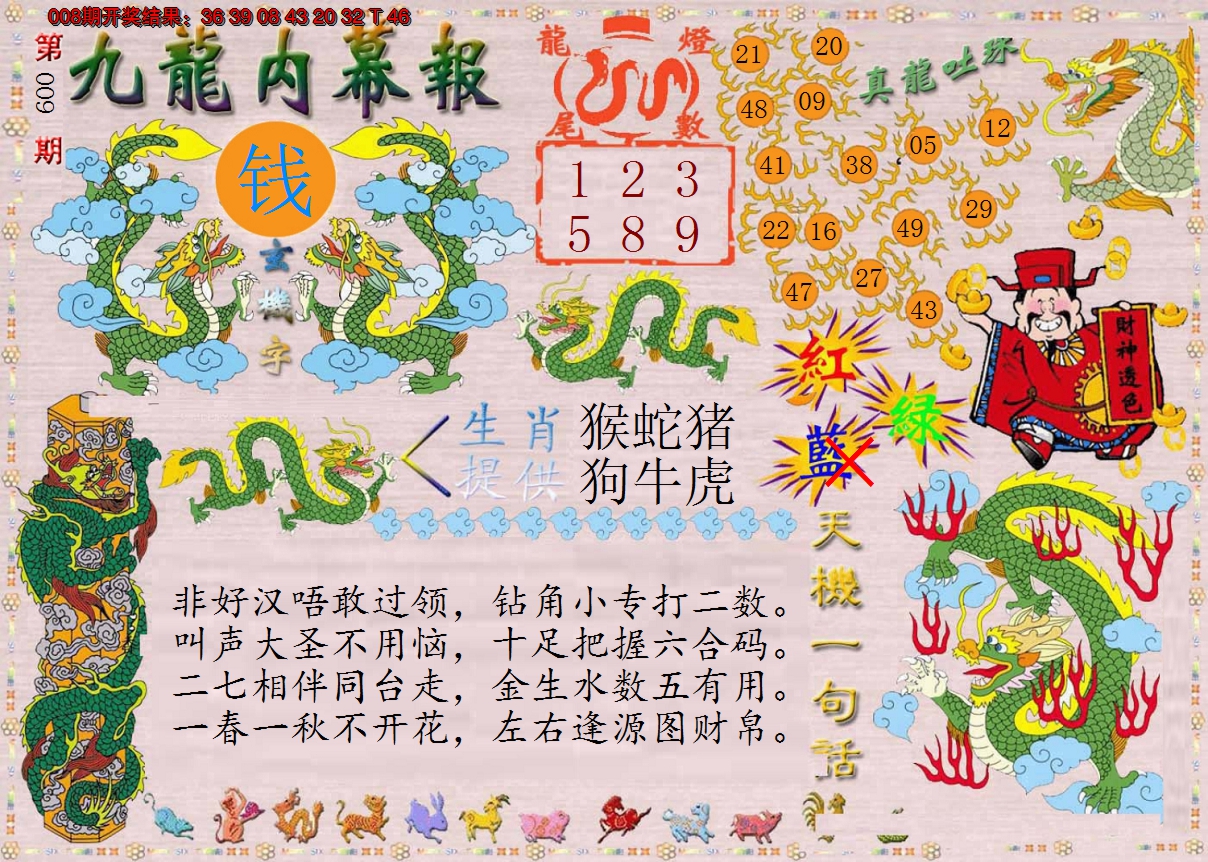 008期开奖结果：36 39 06 43 20 32 T 46
第009期
九龍内幕報
钱
玄機字
龍燈尾數
1 2 3
5 8 9
真龍吐珠
21 20
48 09
41 38 05 12
22 16 49 29
47 27 43
財神透色
紅
綠
藍
生肖 猴蛇猪
提供 狗牛虎
天機一句話
非好汉唔敢过领，钻角小专打二数。
叫声大圣不用恼，十足把握六合码。
二七相伴同台走，金生水数五有用。
一春一秋不开花，左右逢源图财帛。